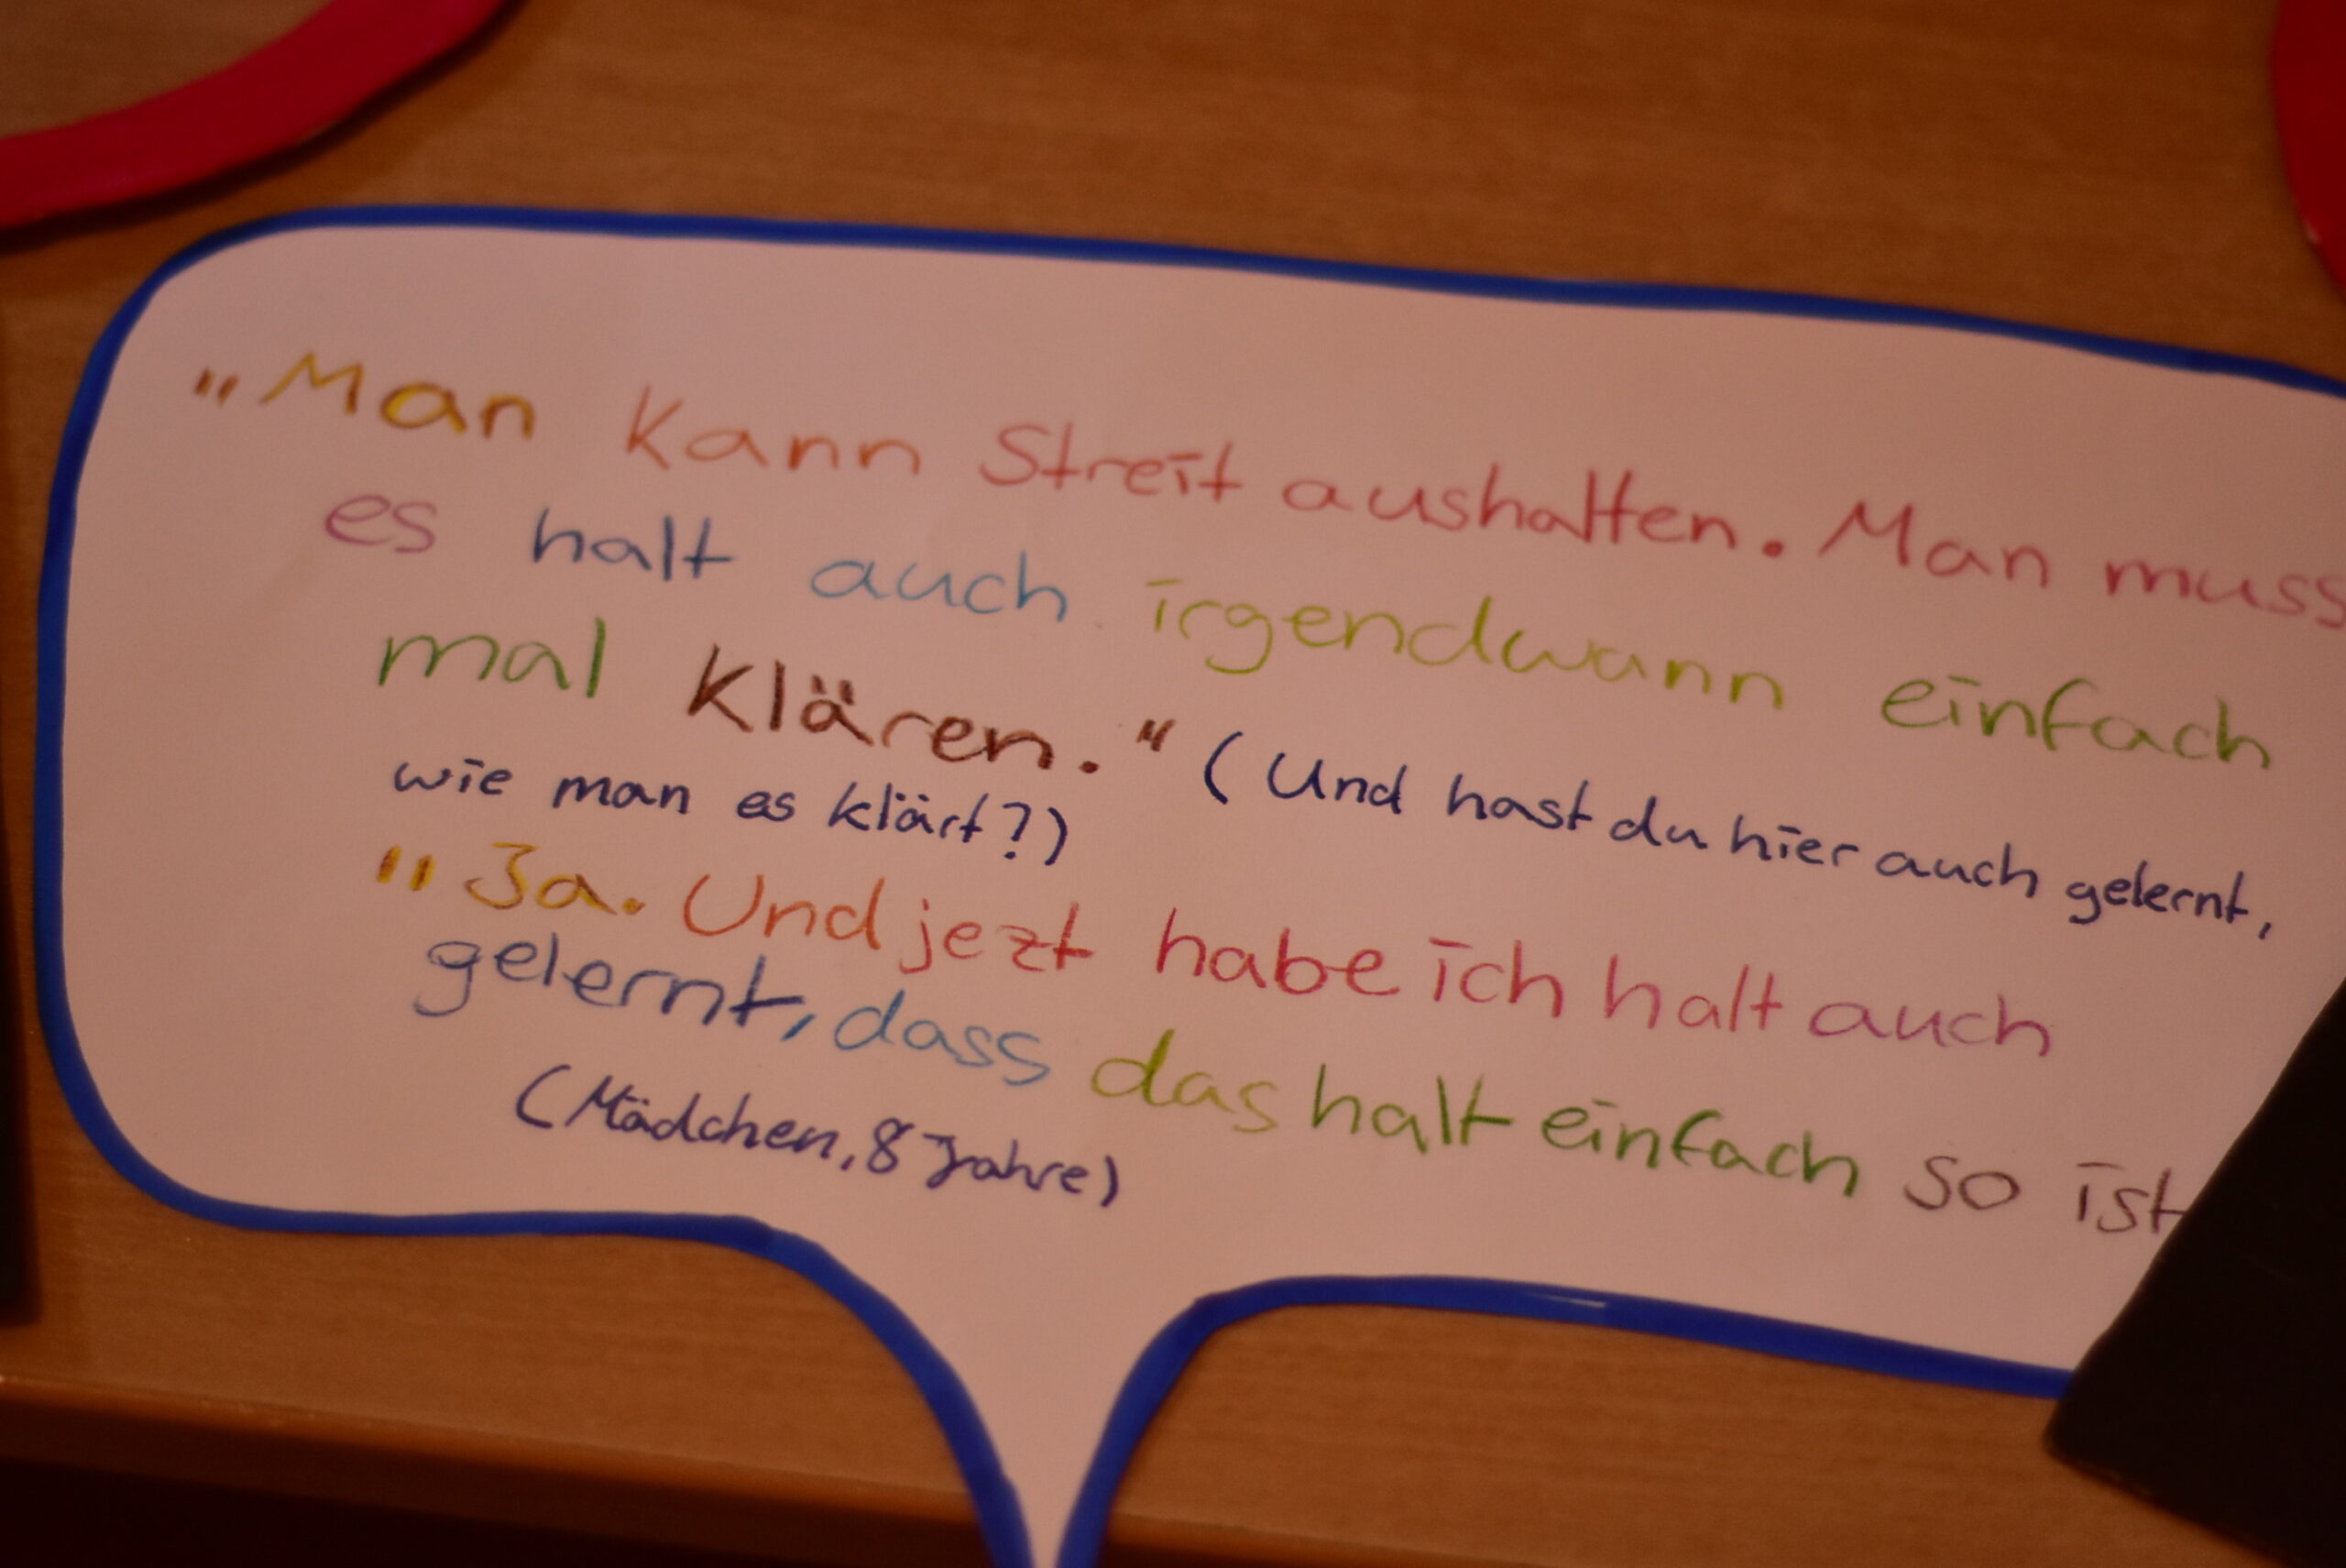 „Man kann Streit aushalten. Man muss
es halt auch irgendwann einfach
mal klären.“ (Und hast du hier auch gelernt,
wie man es klärt?)
"Ja. Und jezt habe ich halt auch
gelernt, dass das halt einfach so ist
(Mädchen, 8 Jahre)